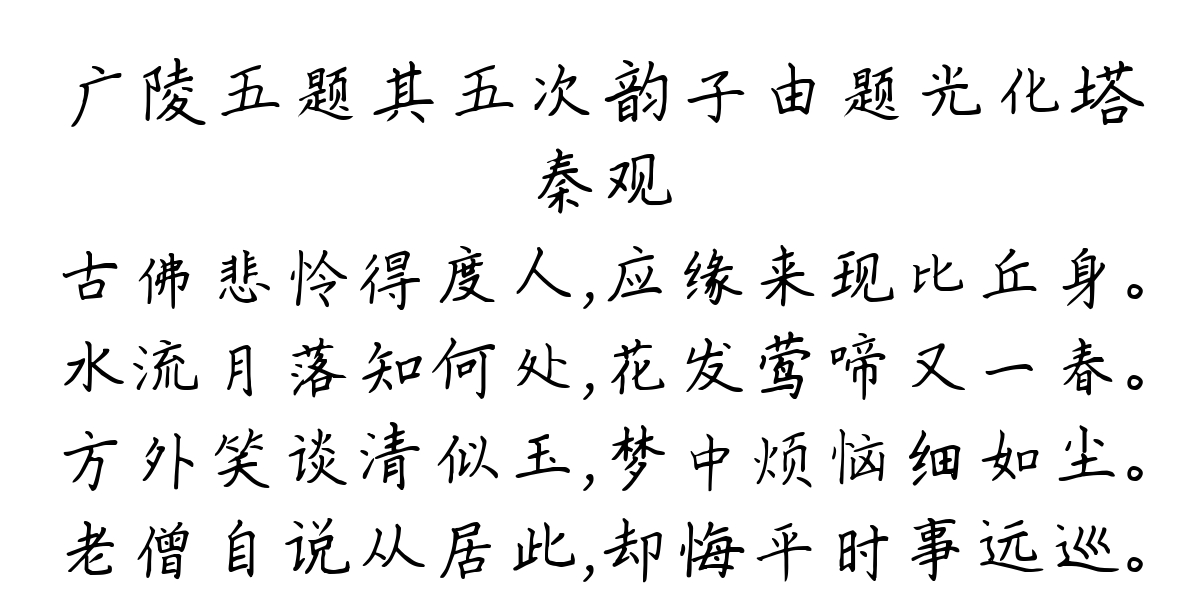 广陵五题其五次韵子由题光化塔
秦观
古佛悲怜得度人,应缘来现比丘身。
水流月落知何处,花发莺啼又一春。
方外笑谈清似玉,梦中烦恼细如尘。
老僧自说从居此,却悔平时事远巡。